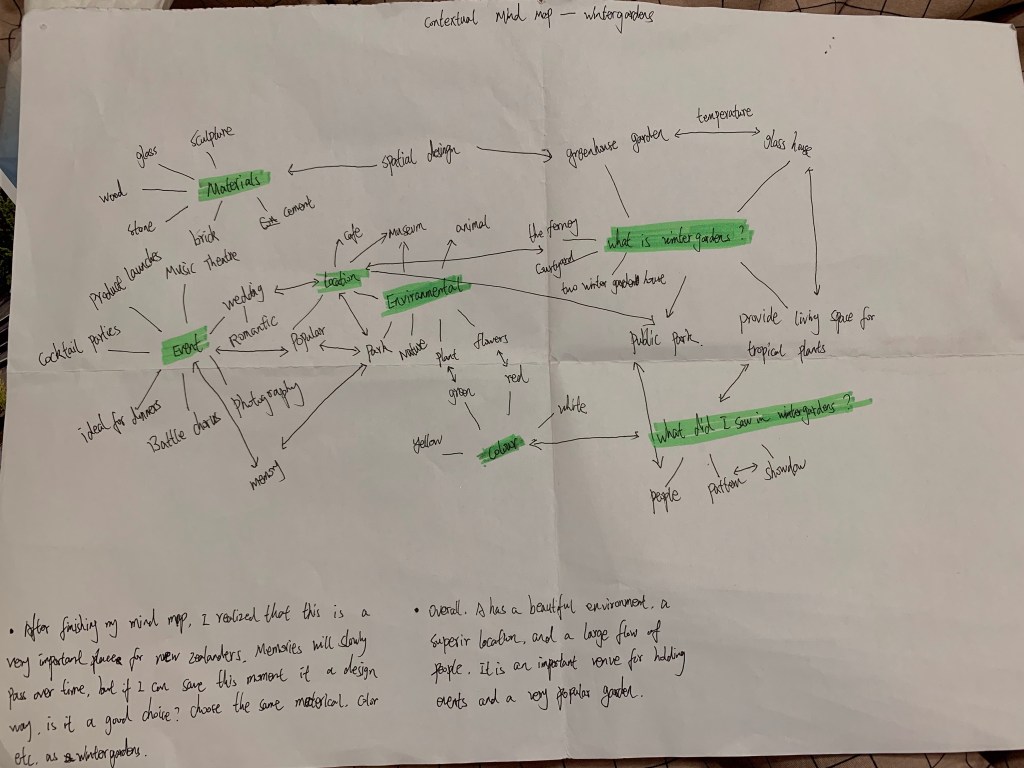 Contextual Mind Map — wintergardens
temperature
sculpture
glass
greenhouse garden
glass house
spatial design
Materials
wood
cement
stone
brick
cafe
Museum
animal
the fernery
what is wintergardens?
Courtyard
Music Theatre
Product launches
location
Environmental
two winter garden house
wedding
Romantic
Popular
Park
Native
plant
flowers
public park.
provide living space for
tropical plants
Cocktail parties
Event
green
red
white
Photography
ideal for dinners
Battle chorus
Yellow
Colour
what did I saw in wintergardens?
memory
people
pattern
showdow
• After finishing my mind map, I realized that this is a
very important place for new zealanders. Memories will slowly
pass over time, but if I can save this moment it a design
way, is it a good choice? choose the same material. color
etc. as wintergardens.
• overall. A has a beautiful environment, a
superir location, and a large flow of
people. It is an important venue for holding
events and a very popular garden.